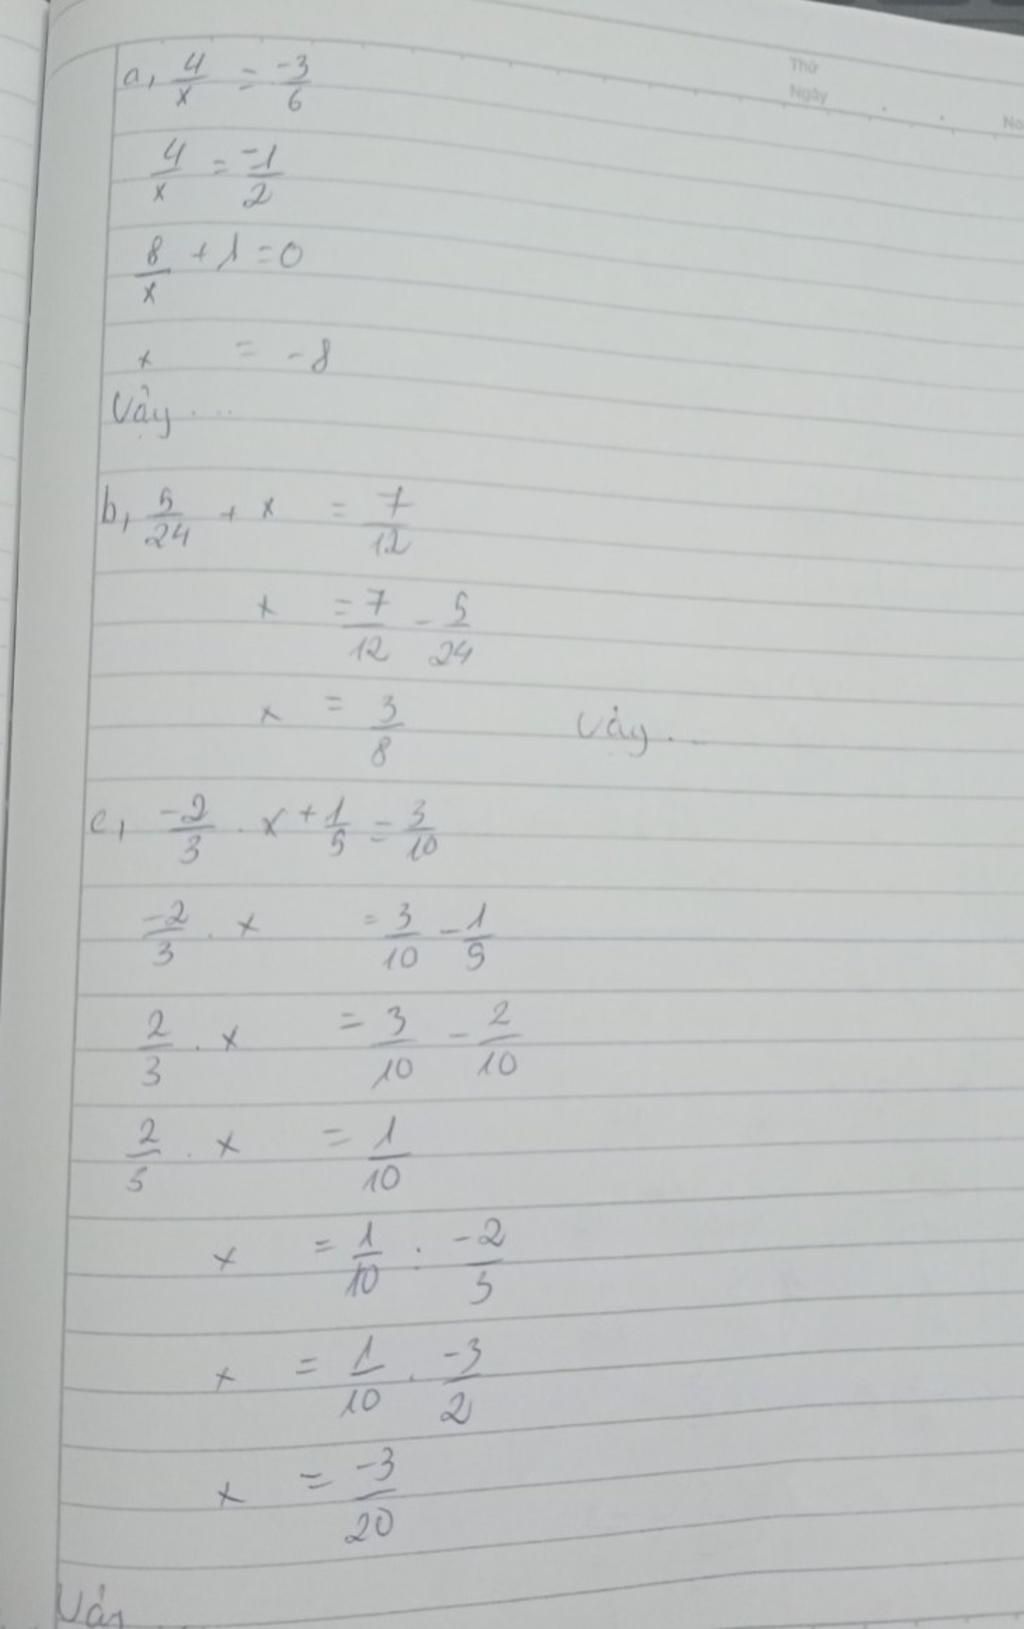 Thứ
Ngày
No
a, 4/x = -3/6
4/x = -1/2
8/x + 1 = 0
x = -8
Vậy ...
b, 5/24 + x = 7/12
x = 7/12 - 5/24
x = 3/8 Vậy ...
c, -2/3 . x + 1/5 = 3/10
-2/3 . x = 3/10 - 1/5
2/3 . x = 3/10 - 2/10
2/3 . x = 1/10
x = 1/10 : -2/3
x = 1/10 . -3/2
x = -3/20
Vậy